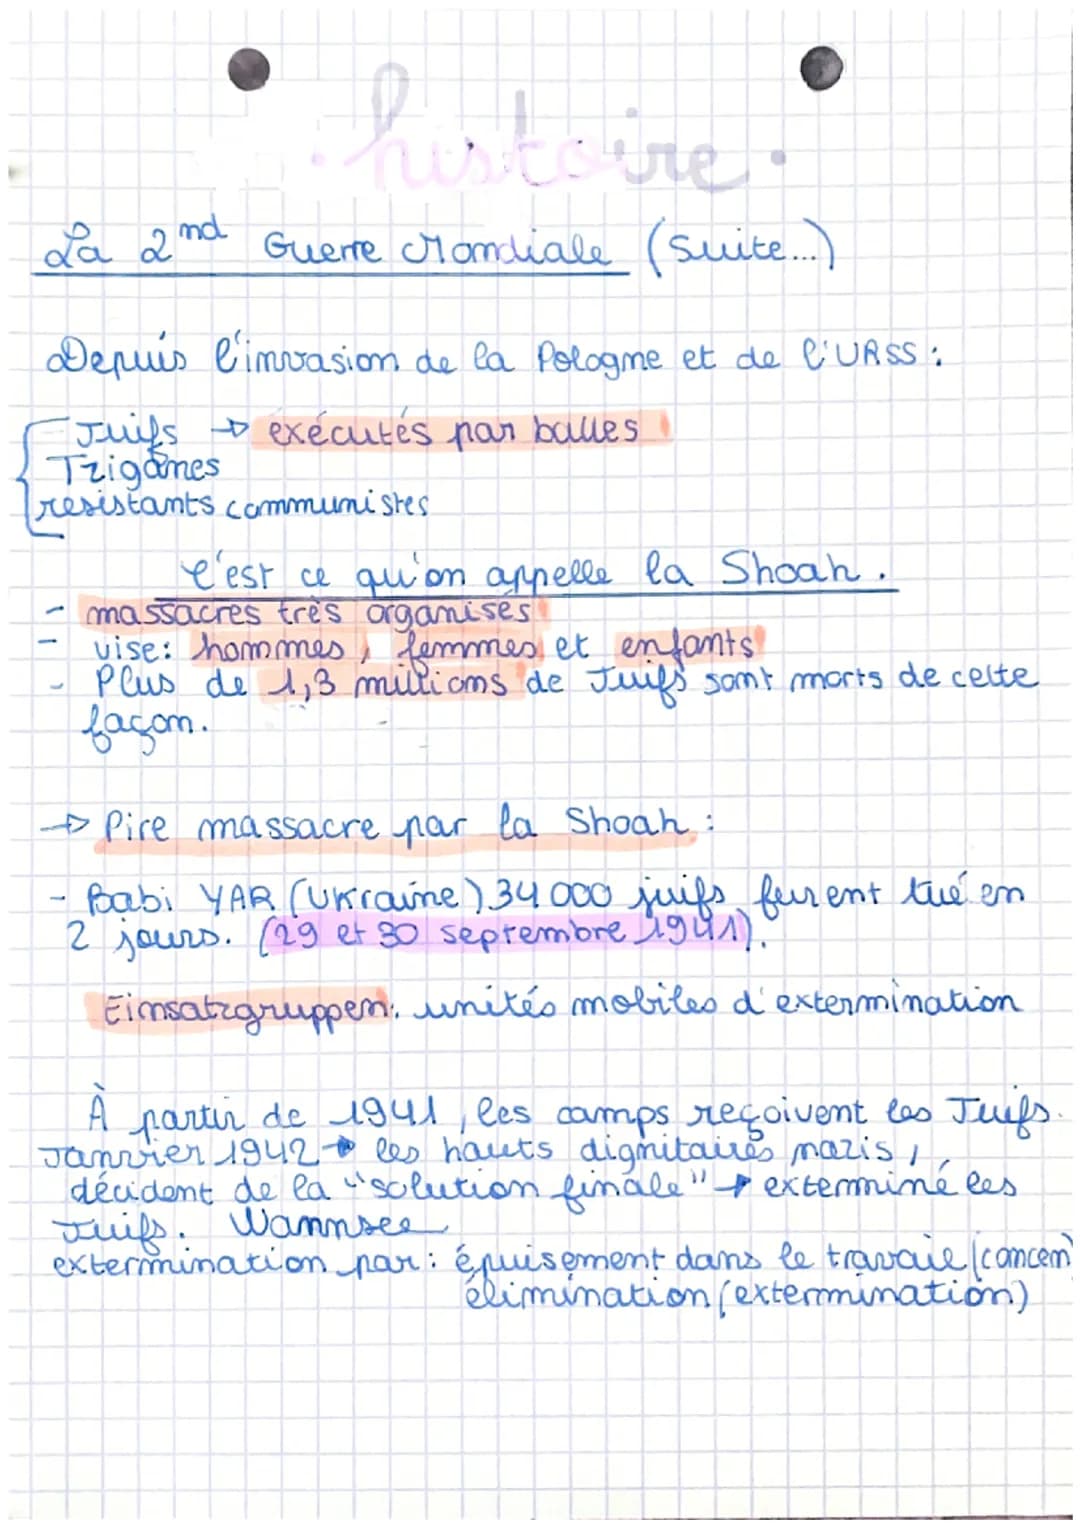 histoire.
La 2nd Guerre Mondiale (Suite...)
Depuis l'invasion de la Pologne et de l'URSS :
Juifs → exécutés par balles
Tziganes
resistants communistes
c'est ce qu'on appelle la Shoah.
- massacres très organisés
- vise: hommes, femmes et enfants
- Plus de 1,3 millions de Juifs sont morts de cette
façon.
→ Pire massacre par la Shoah :
- Babi YAR (Ukraine) 34 000 juifs furent tué en
2 jours. (29 et 30 septembre 1941).
Einsatzgruppen: unités mobiles d'extermination
À partir de 1941, les camps reçoivent les Juifs.
Janvier 1942 → les hauts dignitaires nazis,
décident de la "solution finale" → exterminé les
Juifs. Wannsee
extermination par : épuisement dans le travail (concen)
élimination (extermination)